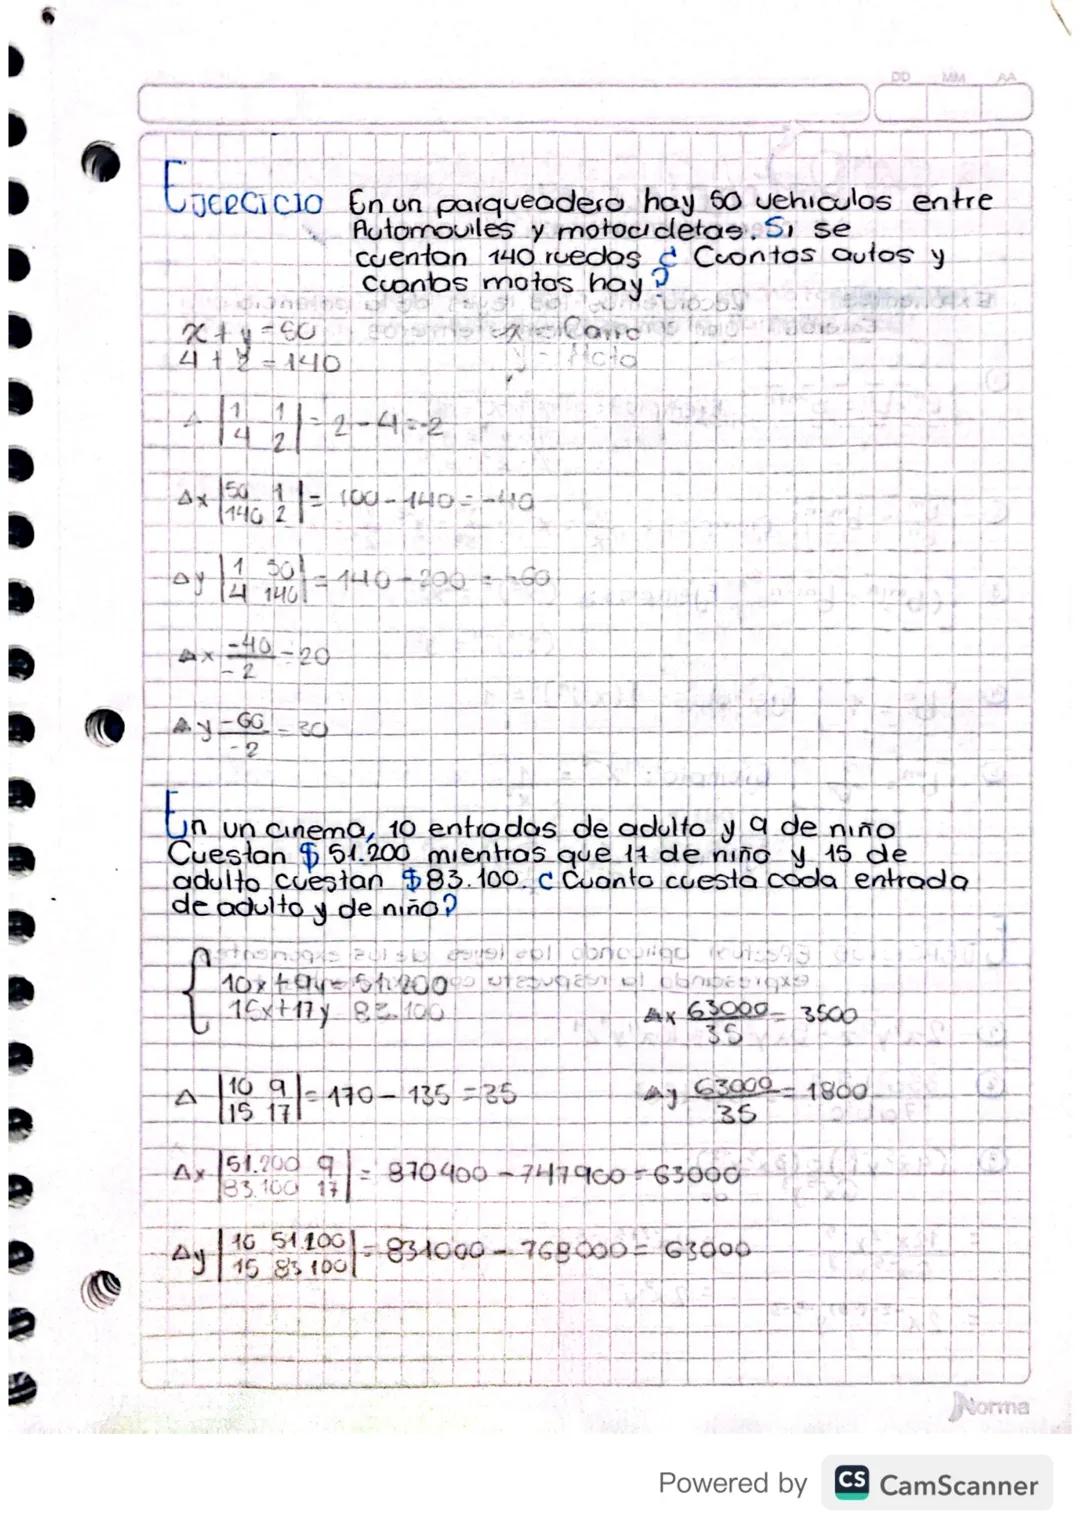 DD MM AA
EJERCICIO En un parqueadero hay 50 vehiculos entre
Automoviles y motocicletas. Si se
cuentan 140 ruedas ¿ Cuantos autos y
cuantas motos hay?
x + y = 50 x = Carro
4 + 2 = 140 y = Moto
Δ |1 1| = 2 - 4 = -2
|4 2|
Δx |50 1| = 100 - 140 = -40
|140 2|
Δy |1 50| = 140 - 200 = -60
|4 140|
Δx -40 = 20
-2
Δy -60 = 30
-2
En un cinema, 10 entradas de adulto y 9 de niño
Cuestan $ 51.200 mientras que 17 de niño y 15 de
adulto cuestan $83.100. ¿ Cuanto cuesta cada entrada
de adulto y de niño?
10x + 9y = 51.200
15x+17y 83.100
Δx 63000 = 3500
35
Δ |10 9| = 170 - 135 = 35
|15 17|
Δy 63000 = 1800
35
Δx |51.200 9| = 870400 - 747900 = 63000
|83.100 17|
Δy |10 51.200| = 831000 - 768000 = 63000
|15 83 100|
Norma
Powered by CS CamScanner